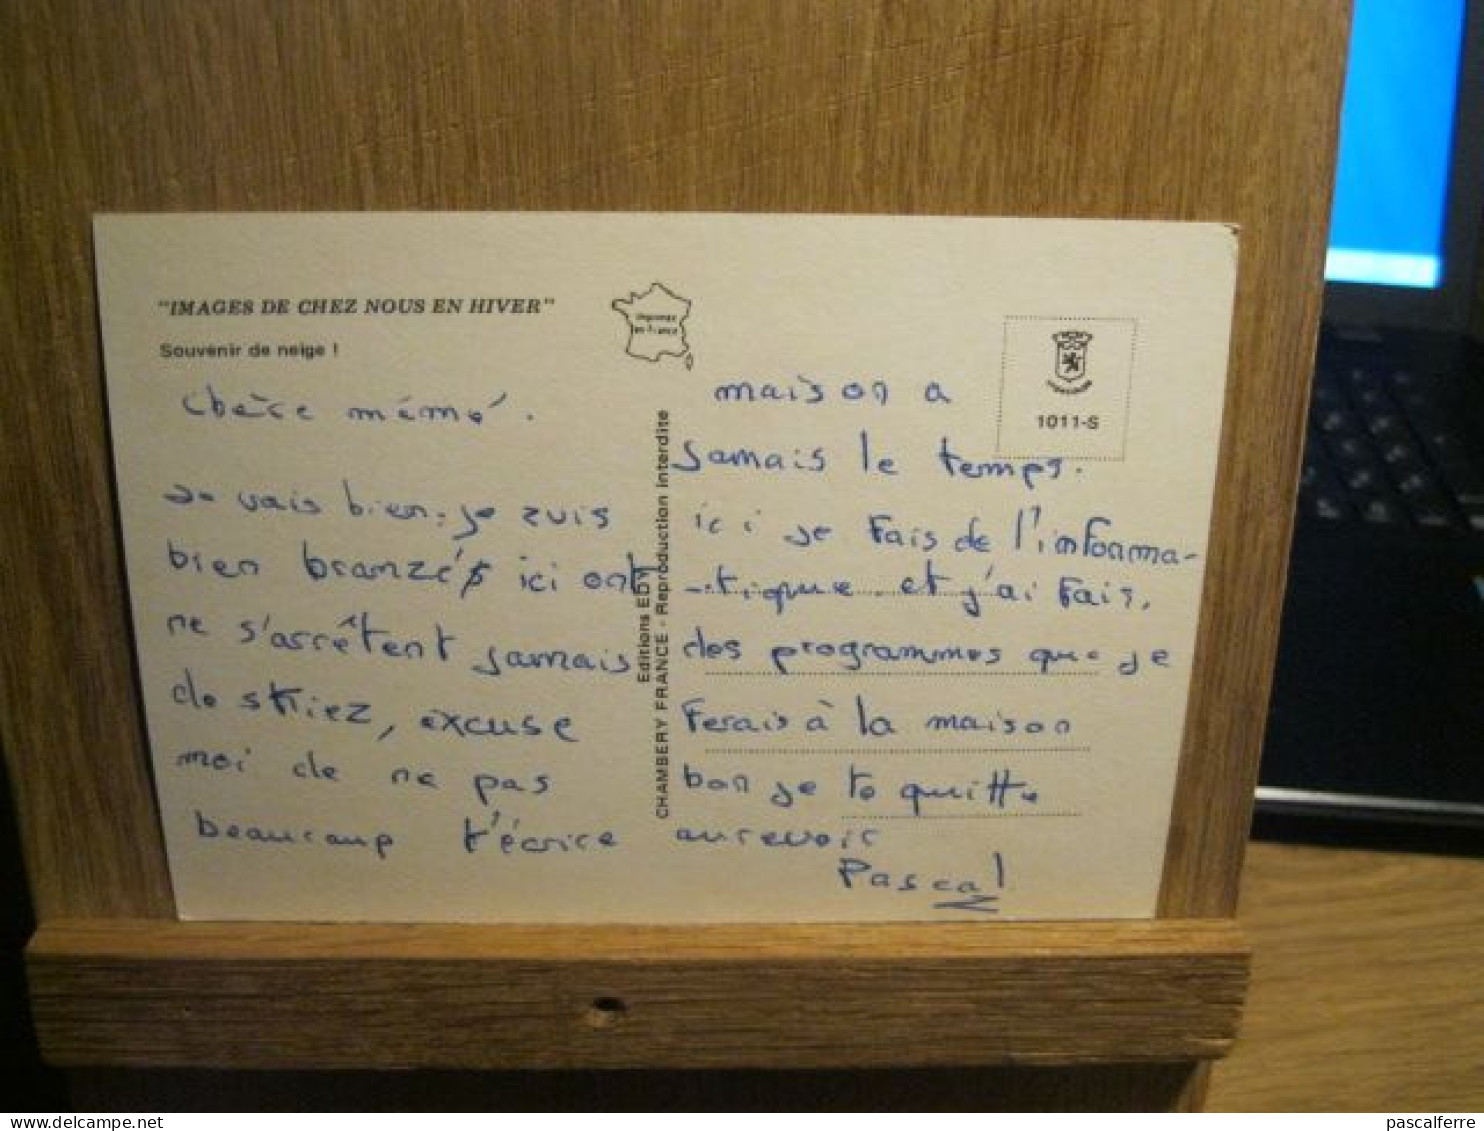 "IMAGES DE CHEZ NOUS EN HIVER"
Souvenir de neige !
Chère mémé.
Je vais bien. je suis
bien bronzés ici ont
ne s'arrêtent jamais
de skiez, excuse
moi de ne pas
beaucoup t'écrire
Imprimé
en France
Editions EDY
CHAMBERY FRANCE - Reproduction interdite
1011-S
maison a
jamais le temps.
ici je fais de l'informa-
-tique. et j'ai fais.
des programmes que je
ferais à la maison
bon je te quitte
aurevoir
Pascal
delcampe.net
pascalferre